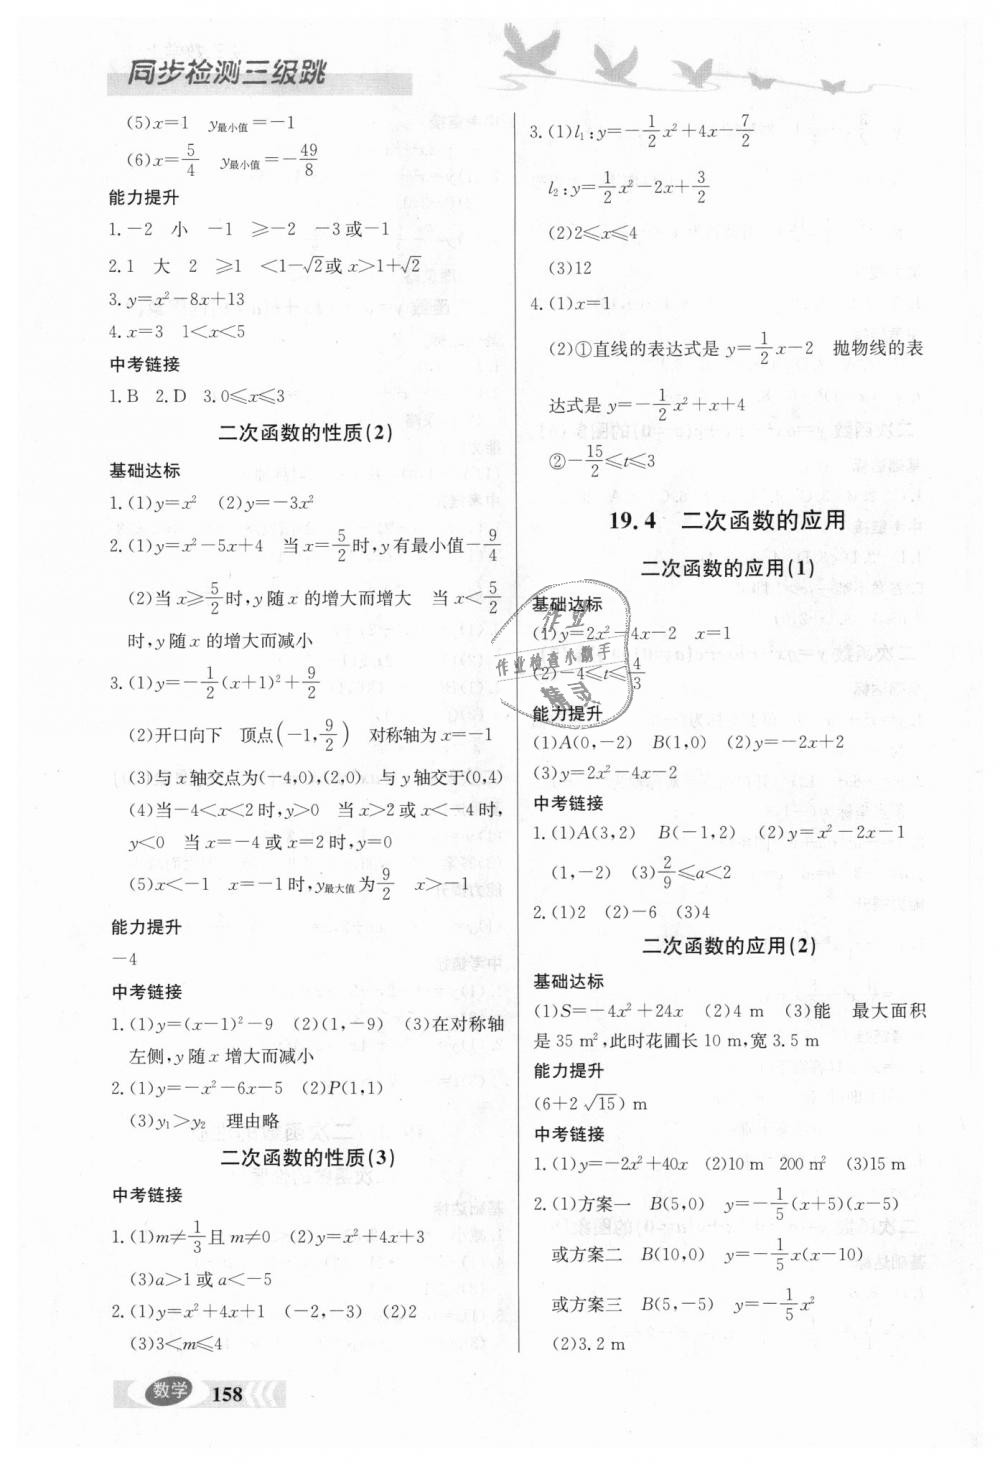 同步检测三级跳
(5)x=1　y最小值=-1
(6)x=5/4　y最小值=-49/8
能力提升
1.-2　小　-1　≥-2　-3或-1
2.1　大　2　≥1　<1-√2或x>1+√2
3.y=x²-8x+13
4.x=3　1<x<5
中考链接
1.B　2.D　3.0≤x≤3
二次函数的性质(2)
基础达标
1.(1)y=x²　(2)y=-3x²
2.(1)y=x²-5x+4　当x=5/2时,y有最小值-9/4
(2)当x≥5/2时,y随x的增大而增大　当x<5/2
时,y随x的增大而减小
3.(1)y=-1/2(x+1)²+9/2
(2)开口向下　顶点(-1,9/2)　对称轴为x=-1
(3)与x轴交点为(-4,0),(2,0)　与y轴交于(0,4)
(4)当-4<x<2时,y>0　当x>2或x<-4时,
y<0　当x=-4或x=2时,y=0
(5)x<-1　x=-1时,y最大值为9/2　x>-1
能力提升
-4
中考链接
1.(1)y=(x-1)²-9　(2)(1,-9)　(3)在对称轴
左侧,y随x增大而减小
2.(1)y=-x²-6x-5　(2)P(1,1)
(3)y₁>y₂　理由略
二次函数的性质(3)
中考链接
1.(1)m≠1/3且m≠0　(2)y=x²+4x+3
(3)a>1或a<-5
2.(1)y=x²+4x+1　(-2,-3)　(2)2
(3)3<m≤4
3.(1)l₁:y=-1/2x²+4x-7/2
l₂:y=1/2x²-2x+3/2
(2)2≤x≤4
(3)12
4.(1)x=1
(2)①直线的表达式是y=1/2x-2　抛物线的表
达式是y=-1/2x²+x+4
②-15/2≤t≤3
19.4　二次函数的应用
二次函数的应用(1)
基础达标
(1)y=2x²-4x-2　x=1
(2)-4≤t≤4/3
能力提升
(1)A(0,-2)　B(1,0)　(2)y=-2x+2
(3)y=2x²-4x-2
中考链接
1.(1)A(3,2)　B(-1,2)　(2)y=x²-2x-1
(1,-2)　(3)2/9≤a<2
2.(1)2　(2)-6　(3)4
二次函数的应用(2)
基础达标
(1)S=-4x²+24x　(2)4 m　(3)能　最大面积
是35 m²,此时花圃长10 m,宽3.5 m
能力提升
(6+2√15) m
中考链接
1.(1)y=-2x²+40x　(2)10 m　200 m²　(3)15 m
2.(1)方案一　B(5,0)　y=-1/5(x+5)(x-5)
或方案二　B(10,0)　y=-1/5x(x-10)
或方案三　B(5,-5)　y=-1/5x²
(2)3.2 m
作业
作业检查小帮手
精灵
数学　158